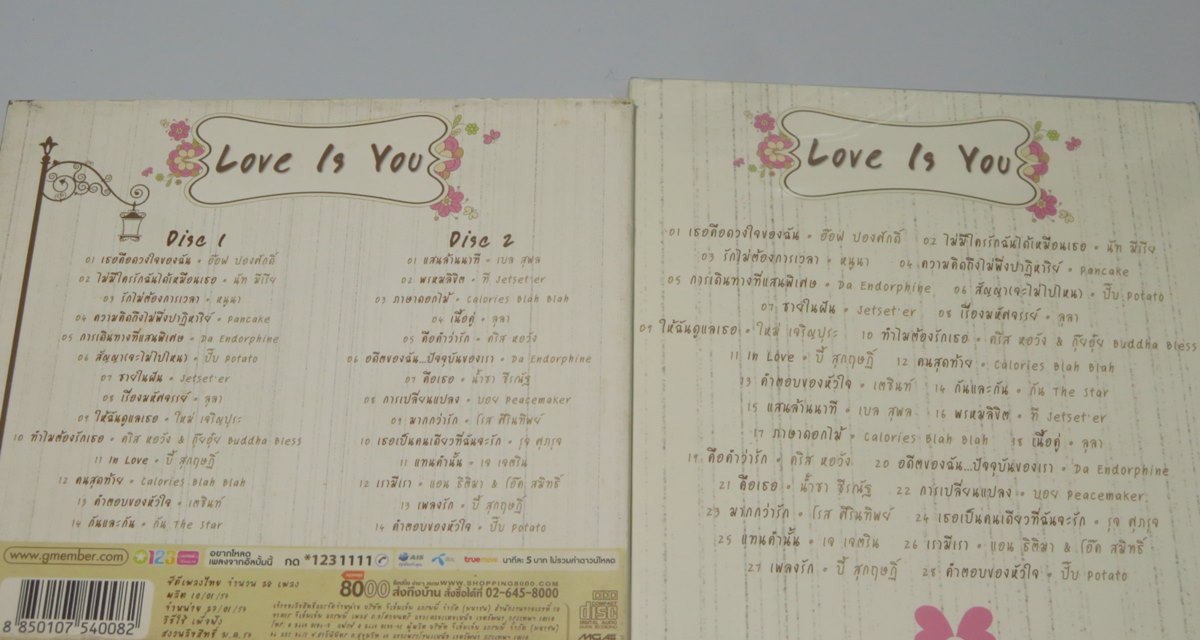 Love Is You
Disc 1
01 เธอคือดวงใจของฉัน • อ๊อฟ ปองศักดิ์
02 ไม่มีใครรักฉันได้เหมือนเธอ • นัท มีเรีย
03 รักไม่ต้องการเวลา • หนูนา
04 ความคิดถึงไม่พึ่งปาฏิหาริย์ • Pancake
05 การเดินทางที่แสนพิเศษ • Da Endorphine
06 สัญญา(จะไม่ไปไหน) • ปั๊บ Potato
07 ชายในฝัน • Jetset'er
08 เรื่องมหัศจรรย์ • ลุลา
09 ให้ฉันดูแลเธอ • ใหม่ เจริญปุระ
10 ทำไมต้องรักเธอ • คริส หอวัง & กุ๊ยอุ๋ย Buddha Bless
11 In Love • บี้ สุกฤษฎิ์
12 คนสุดท้าย • Calories Blah Blah
13 คำตอบของหัวใจ • เตชินท์
14 กันและกัน • กัน The Star
Disc 2
01 แสนล้านนาที • เบล สุพล
02 พรหมลิขิต • ที Jetset'er
03 ภาษาดอกไม้ • Calories Blah Blah
04 เนื้อคู่ • ลุลา
05 คือคำว่ารัก • คริส หอวัง
06 อดีตของฉัน...ปัจจุบันของเรา • Da Endorphine
07 คือเธอ • น้ำชา ชีรณัฐ
08 การเปลี่ยนแปลง • บอย Peacemaker
09 มากกว่ารัก • โรส ศิรินทิพย์
10 เธอเป็นคนเดียวที่ฉันจะรัก • รุจ ศุภรุจ
11 แทนคำนั้น • เจ เจตริน
12 เรามีเรา • แอน ธิติมา & โอ๊ค สมิทธิ์
13 เพลงรัก • บี้ สุกฤษฎิ์
14 คำตอบของหัวใจ • ปั๊บ Potato
www.gmember.com
*123
อยากโหลด
เพลงจากอัลบั้มนี้
กด *1231111
AIS
truemove
นาทีละ 5 บาท ไม่รวมค่าดาวน์โหลด
8 850107 540082
ซีดีเพลงไทย จำนวน 28 เพลง
8000
WWW.SHOPPING8000.COM
ส่งถึงบ้าน สั่งซื้อที่ 02-645-8000
COMPACT
disc
DIGITAL AUDIO
MGA
Love Is You
01 เธอคือดวงใจของฉัน • อ๊อฟ ปองศักดิ์ 02 ไม่มีใครรักฉันได้เหมือนเธอ • นัท มีเรีย
03 รักไม่ต้องการเวลา • หนูนา 04 ความคิดถึงไม่พึ่งปาฏิหาริย์ • Pancake
05 การเดินทางที่แสนพิเศษ • Da Endorphine 06 สัญญา(จะไม่ไปไหน) • ปั๊บ Potato
07 ชายในฝัน • Jetset'er 08 เรื่องมหัศจรรย์ • ลุลา
09 ให้ฉันดูแลเธอ • ใหม่ เจริญปุระ 10 ทำไมต้องรักเธอ • คริส หอวัง & กุ๊ยอุ๋ย Buddha Bless
11 In Love • บี้ สุกฤษฎิ์ 12 คนสุดท้าย • Calories Blah Blah
13 คำตอบของหัวใจ • เตชินท์ 14 กันและกัน • กัน The Star
15 แสนล้านนาที • เบล สุพล 16 พรหมลิขิต • ที Jetset'er
17 ภาษาดอกไม้ • Calories Blah Blah 18 เนื้อคู่ • ลุลา
19 คือคำว่ารัก • คริส หอวัง 20 อดีตของฉัน...ปัจจุบันของเรา • Da Endorphine
21 คือเธอ • น้ำชา ชีรณัฐ 22 การเปลี่ยนแปลง • บอย Peacemaker
23 มากกว่ารัก • โรส ศิรินทิพย์ 24 เธอเป็นคนเดียวที่ฉันจะรัก • รุจ ศุภรุจ
25 แทนคำนั้น • เจ เจตริน 26 เรามีเรา • แอน ธิติมา & โอ๊ค สมิทธิ์
27 เพลงรัก • บี้ สุกฤษฎิ์ 28 คำตอบของหัวใจ • ปั๊บ Potato